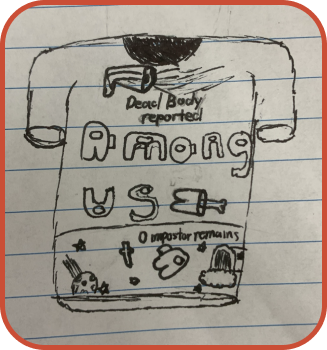 Dead Body
reported
Among
US
0 impostor remains